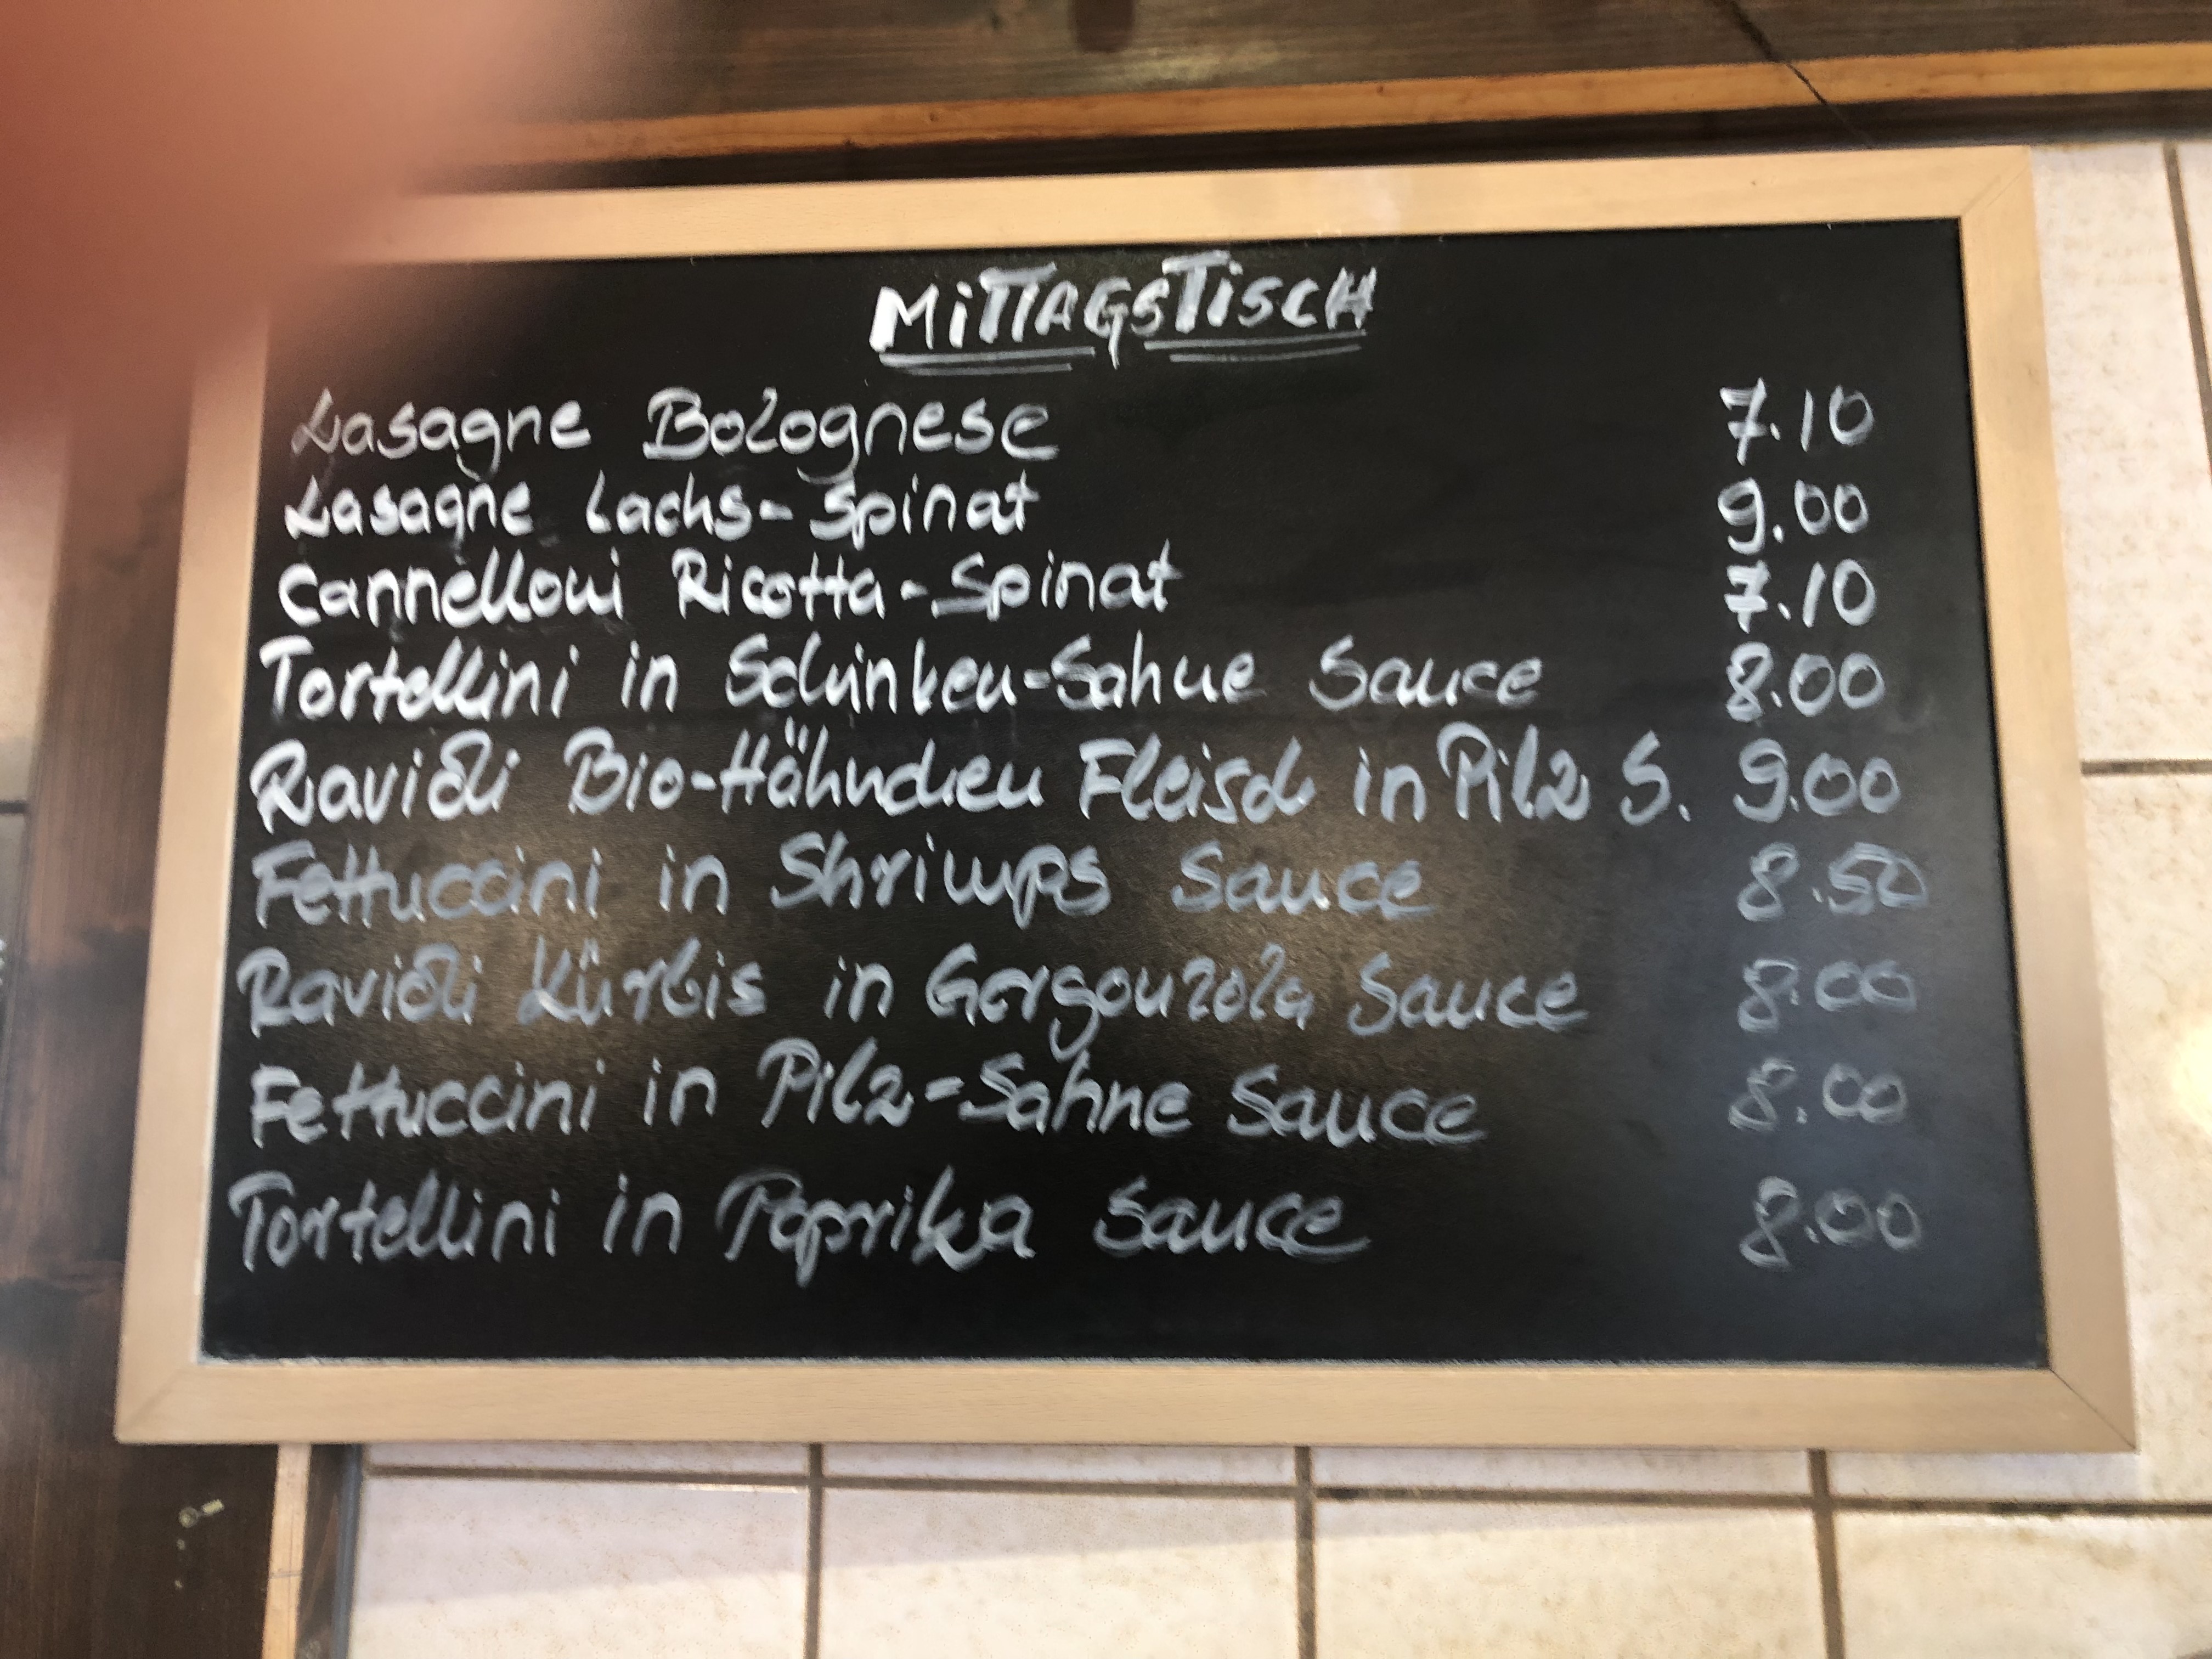 MITTAGSTISCH
Lasagne Bolognese 7.10
Lasagne Lachs-Spinat 9.00
Cannelloni Ricotta-Spinat 7.10
Tortellini in Schinken-Sahne Sauce 8.00
Ravioli Bio-Hähnchen Fleisch in Pilz S. 9.00
Fettuccini in Shrimps Sauce 8.50
Ravioli Kürbis in Gorgonzola Sauce 8.00
Fettuccini in Pilz-Sahne Sauce 8.00
Tortellini in Paprika Sauce 8.00